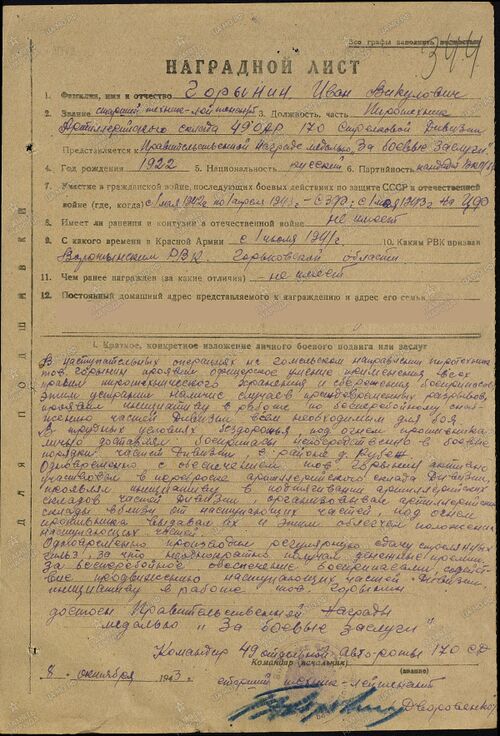 Все графы заполнять полностью
344
НАГРАДНОЙ ЛИСТ
1. Фамилия, имя и отчество Горынин Иван Викулович
2. Звание старший техник-лейтенант 3. Должность, часть Пиротехник
Артиллерийского склада 49 ОАР 170 Стрелковой Дивизии
Представляется к Правительственной Награде медалью „За боевые Заслуги"
4. Год рождения 1922 5. Национальность русский 6. Партийность кандидат ВКП/б/
7. Участие в гражданской войне, последующих боевых действиях по защите СССР и отечественной
войне (где, когда) с 1 мая 1942г по 1 апреля 1943г - СЗФ, с 1 мая 1943г на ЦФ
8. Имеет ли ранения и контузии в отечественной войне не имеет
9. С какого времени в Красной Армии с 1 июля 1941г 10. Каким РВК призван
Воротынским РВК - Горьковской области
11. Чем ранее награжден (за какие отличия) - не имеет
12. Постоянный домашний адрес представляемого к награждению и адрес его семьи
ДЛЯ ПОДШИВКИ
I. Краткое, конкретное изложение личного боевого подвига или заслуг
В наступательных операциях на гомельском направлении пиротехник
тов. Горынин проявил умение применения всех
правил пиротехнического хранения и сбережения боеприпасов
этим устранил наличие случаев преждевременных разрывов,
проявлял инициативу в работе по бесперебойному снаб-
жению частей дивизии всем необходимым для боя
В трудных условиях бездорожья под огнем противника
лично доставлял боеприпасы непосредственно в боевые
порядки частей дивизии в районе д. Рубеж
Одновременно с обеспечением тов. Горынин активно
участвовал в переброске артиллерийского склада Дивизии,
проявлял инициативу в подтягивании артиллерийских
складов частей дивизии, организовывал артиллерийские
склады вблизи от наступающих частей, под огнем
противника выдавал их и этим облегчал положение
наступающих частей.
Одновременно производил регулярную сдачу стрелянных
гильз, за что неоднократно получал денежные премии.
За бесперебойное обеспечение боеприпасами, содейст-
вие продвижению наступающих частей дивизии,
инициативу в работе тов. Горынин
достоен Правительственной Награды
медалью „За боевые заслуги"
Командир 49 отдельной авто-роты 170 СД
Командир (начальник) (звание)
8 октября 1943 г. старший техник-лейтенант